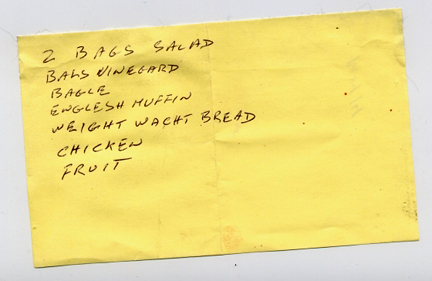 2 BAGS SALAD
BALS VINEGARD
BAGLE
ENGLESH MUFFIN
WEIGHT WACHT BREAD
CHICKEN
FRUIT